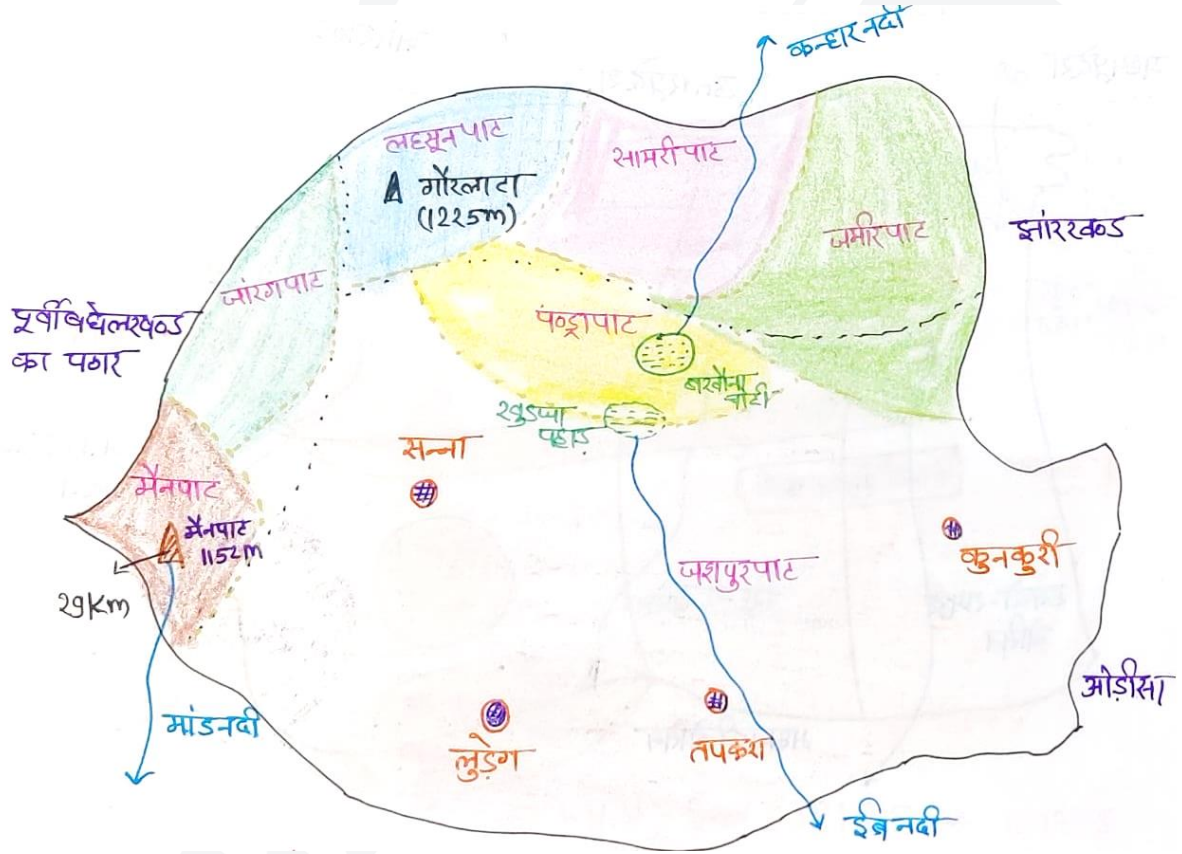 कन्हार नदी
लहसूनपाट
गौरलाटा
(1225m)
सामरीपाट
जमीरपाट
झांरखण्ड
जांरगपाट
पूर्वी बघेलखण्ड
का पठार
पण्ड्रापाट
बखौना
चोटी
खुडिया
पहाड़
सन्ना
मैनपाट
मैनपाट
1152m
29Km
जशपुरपाट
कुनकुरी
ओड़ीसा
मांडनदी
लुड़ेग
तपकरा
ईब नदी